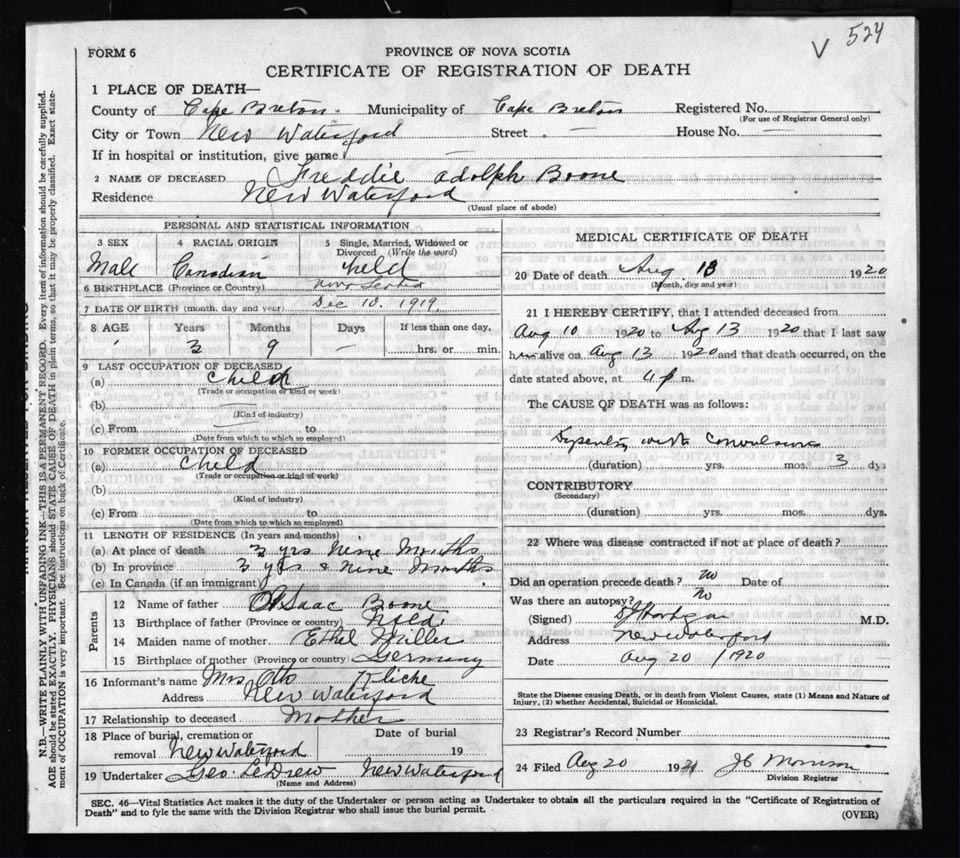 V 524
FORM 6
PROVINCE OF NOVA SCOTIA
CERTIFICATE OF REGISTRATION OF DEATH
1 PLACE OF DEATH—
County of Cape Breton Municipality of Cape Breton Registered No.
(For use of Registrar General only)
City or Town New Waterford Street — House No. —
If in hospital or institution, give name —
2 NAME OF DECEASED Freddie Adolph Boone
Residence New Waterford
(Usual place of abode)
PERSONAL AND STATISTICAL INFORMATION
3 SEX 4 RACIAL ORIGIN 5 Single, Married, Widowed or Divorced (Write the word)
Male Canadian
6 BIRTHPLACE (Province or Country) Nova Scotia
7 DATE OF BIRTH (month, day and year) Dec 10. 1919
8 AGE Years Months Days If less than one day,
3 9 — hrs. or min.
9 LAST OCCUPATION OF DECEASED
(a) Child
(Trade or occupation or kind of work)
(b)
(Kind of industry)
(c) From to
(Date from which to which so employed)
10 FORMER OCCUPATION OF DECEASED
(a) Child
(Trade or occupation or kind of work)
(b)
(Kind of industry)
(c) From to
(Date from which to which so employed)
11 LENGTH OF RESIDENCE (In years and months)
(a) At place of death 3 yrs Nine Months
(b) In province 3 yrs & nine Months
(c) In Canada (if an immigrant)
Parents
12 Name of father Isaac Boone
13 Birthplace of father (Province or country) Nfld
14 Maiden name of mother Ethel Miller
15 Birthplace of mother (Province or country) Germany
16 Informant's name Mrs Otto
Address New Waterford
17 Relationship to deceased Mother
18 Place of burial, cremation or removal New Waterford Date of burial 19
19 Undertaker Geo. LeDrew New Waterford
(Name and Address)
MEDICAL CERTIFICATE OF DEATH
20 Date of death Aug 13 1920
(Month, day and year)
21 I HEREBY CERTIFY, that I attended deceased from
Aug 10 1920 to Aug 13 1920 that I last saw
him alive on Aug 13 1920 and that death occurred, on the
date stated above, at 4 p m.
The CAUSE OF DEATH was as follows:
Dysentery with convulsions
(duration) yrs. mos. 3 dys
CONTRIBUTORY
(Secondary)
(duration) yrs. mos. dys.
22 Where was disease contracted if not at place of death?
Did an operation precede death? no Date of
Was there an autopsy? No
(Signed) M.D.
Address New Waterford
Date Aug 20 / 1920
State the Disease causing Death, or in death from Violent Causes, state (1) Means and Nature of
Injury, (2) whether Accidental, Suicidal or Homicidal.
23 Registrar's Record Number
24 Filed Aug 20 19 J G Morrison
Division Registrar
SEC. 46—Vital Statistics Act makes it the duty of the Undertaker or person acting as Undertaker to obtain all the particulars required in the "Certificate of Registration of
Death" and to fyle the same with the Division Registrar who shall issue the burial permit.
(OVER)
N.B.—WRITE PLAINLY WITH UNFADING INK—THIS IS A PERMANENT RECORD. Every item of information should be carefully supplied.
AGE should be stated EXACTLY. PHYSICIANS should STATE CAUSE OF DEATH in plain terms, so that it may be properly classified. Exact state-
ment of OCCUPATION is very important. See instructions on back of Certificate.